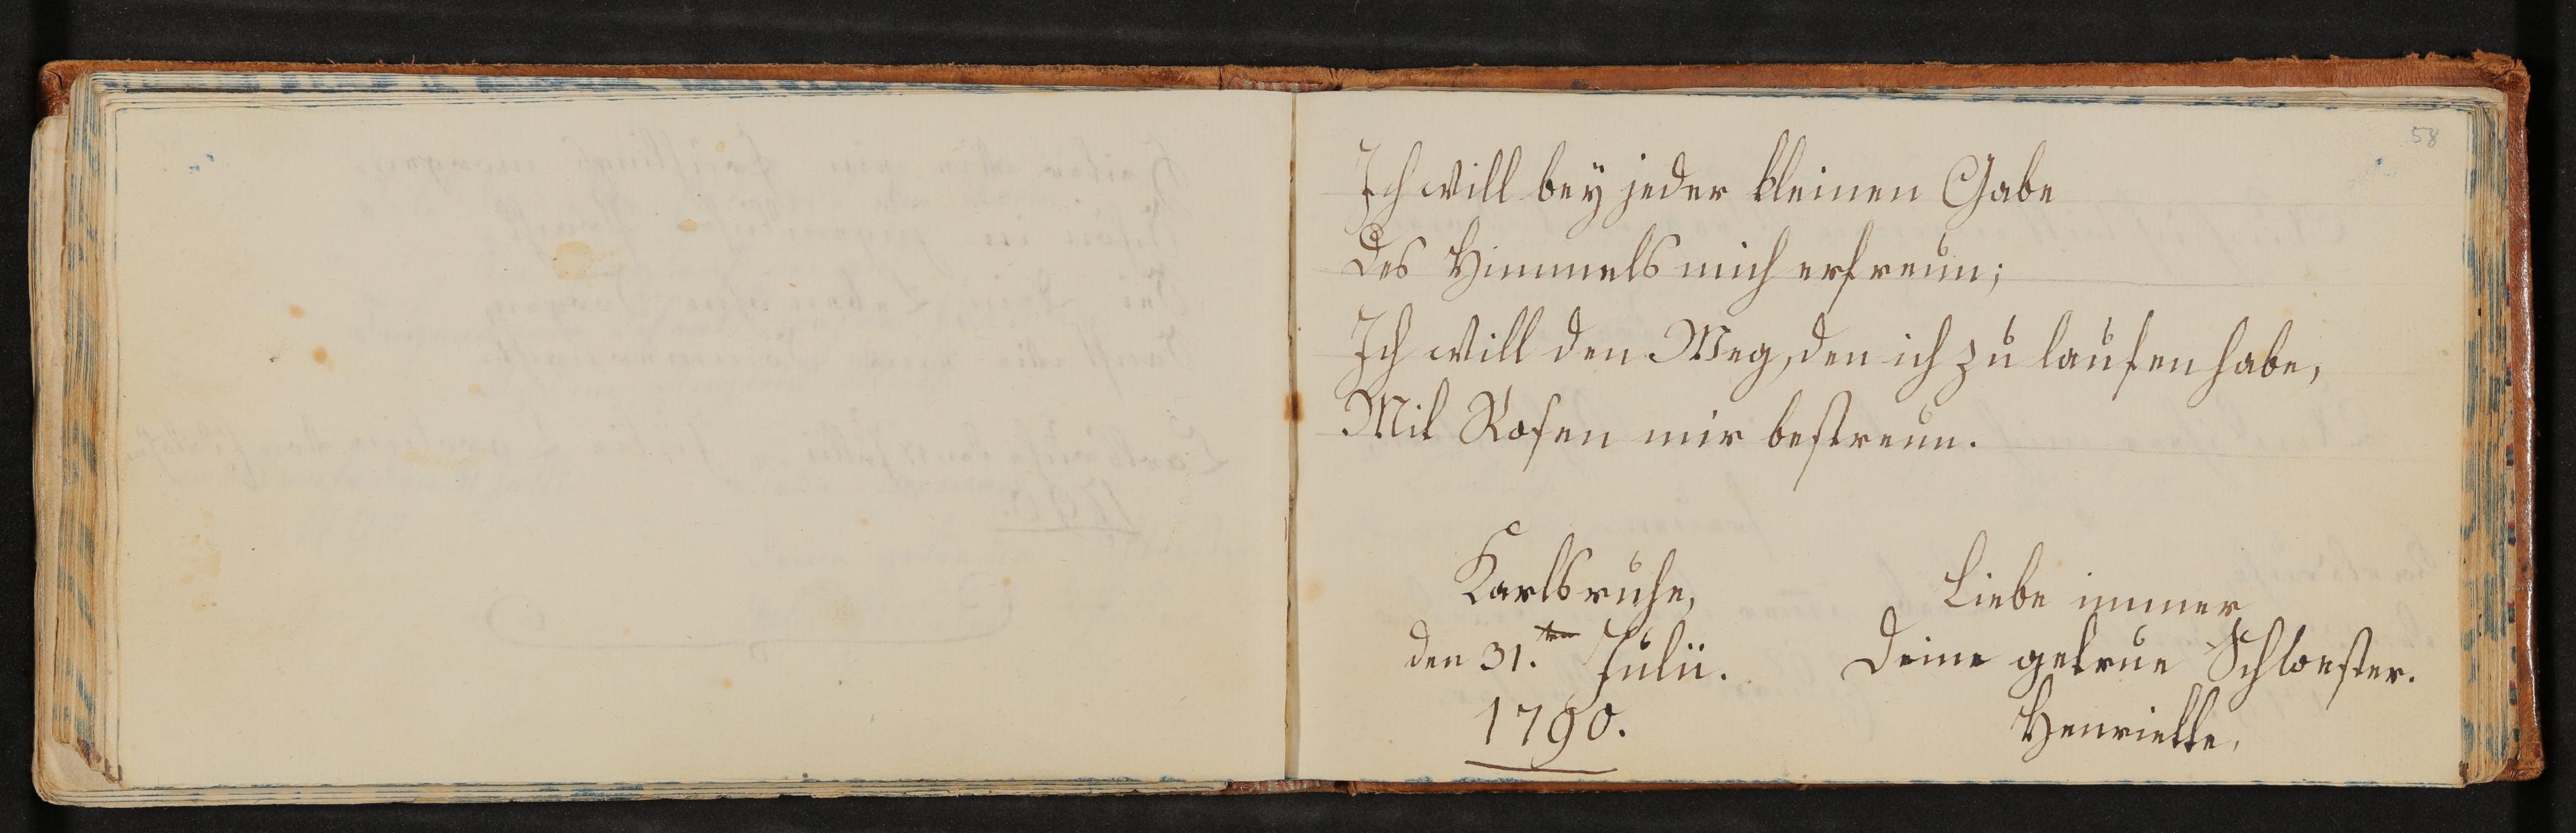 58
Ich will bey jeder kleinen Gabe
Des Himmels mich erfreun;
Ich will den Weg, den ich zu laufen habe,
Mit Rosen mir bestreun.
Karlsruhe,
den 31.ten Julii.
1790.
Liebe immer
Deine getreue Schwester.
Henriette.